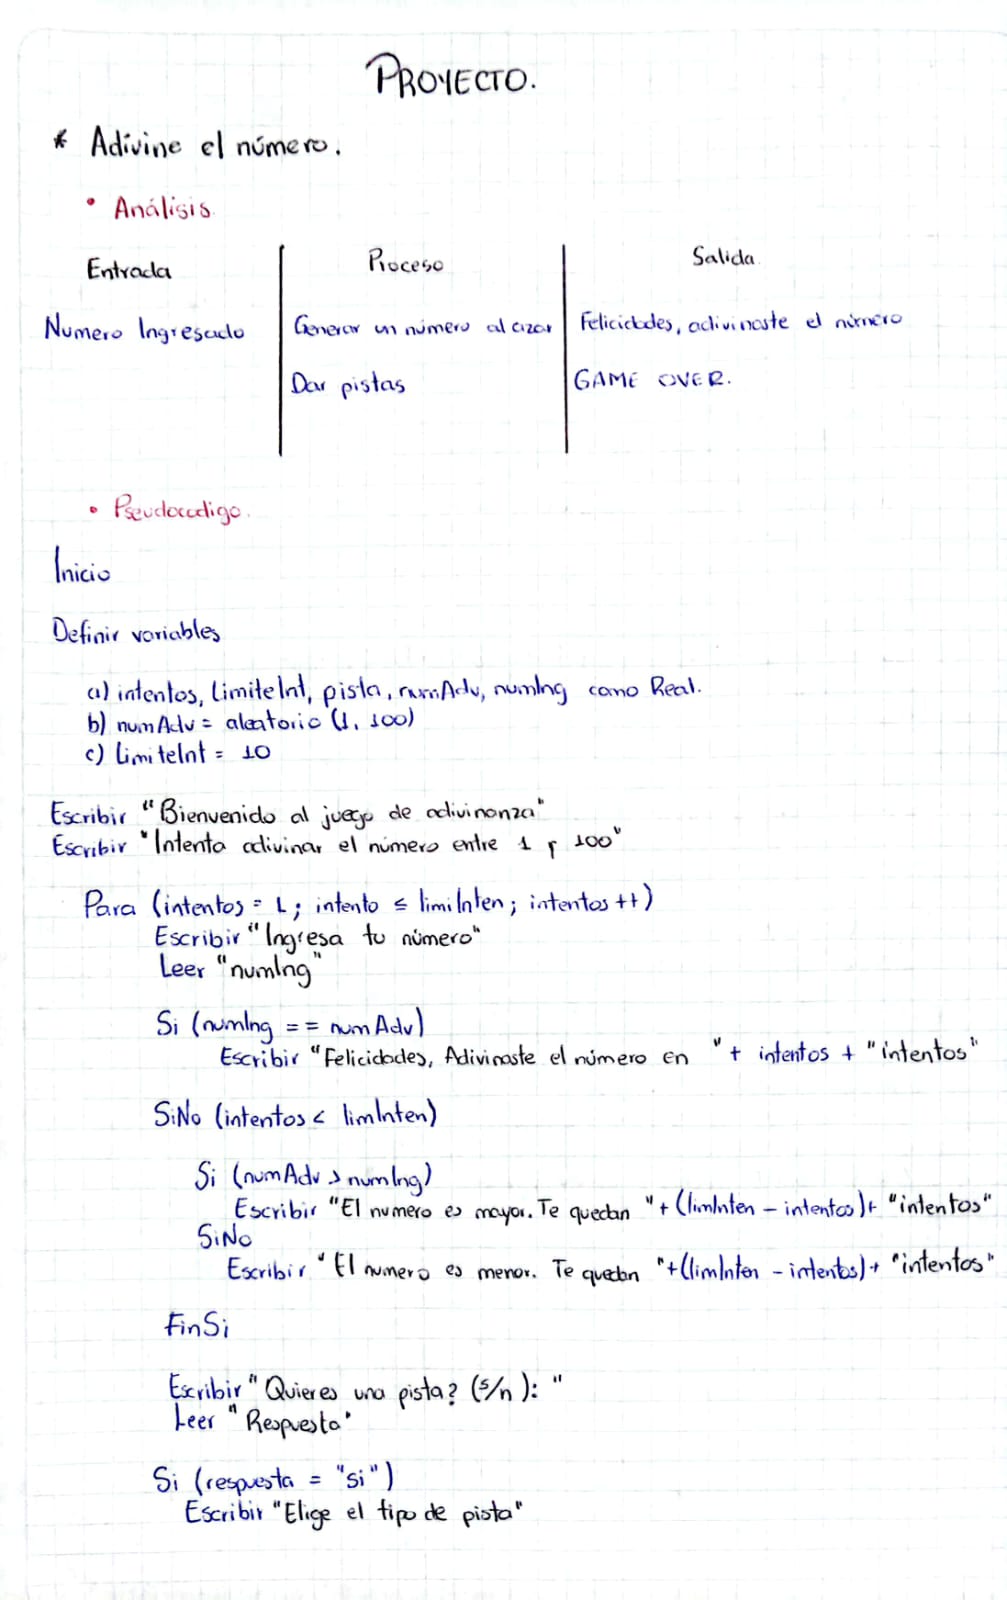 PROYECTO.
* Adivine el número.
• Análisis
Entrada
Proceso
Salida
Numero Ingresado
Generar un número al azar
Felicidades, adivinaste el número
Dar pistas
GAME OVER.
• Pseudocodigo.
Inicio
Definir variables
a) intentos, LimiteInt, pista, numAdv, numIng como Real.
b) numAdv = aleatorio (1, 100)
c) LimiteInt = 10
Escribir "Bienvenido al juego de adivinanza"
Escribir "Intenta adivinar el número entre 1 y 100"
Para (intentos = 1; intento ≤ limiInten; intentos ++)
Escribir "Ingresa tu número"
Leer "numIng"
Si (numIng == numAdv)
Escribir "Felicidades, Adivinaste el número en " + intentos + "intentos"
SiNo (intentos < limInten)
Si (numAdv > numIng)
Escribir "El numero es mayor. Te quedan " + (limInten - intentos) + "intentos"
SiNo
Escribir "El numero es menor. Te quedan " + (limInten - intentos) + "intentos"
FinSi
Escribir "Quieres una pista? (s/n): "
Leer "Respuesta"
Si (respuesta = "si")
Escribir "Elige el tipo de pista"